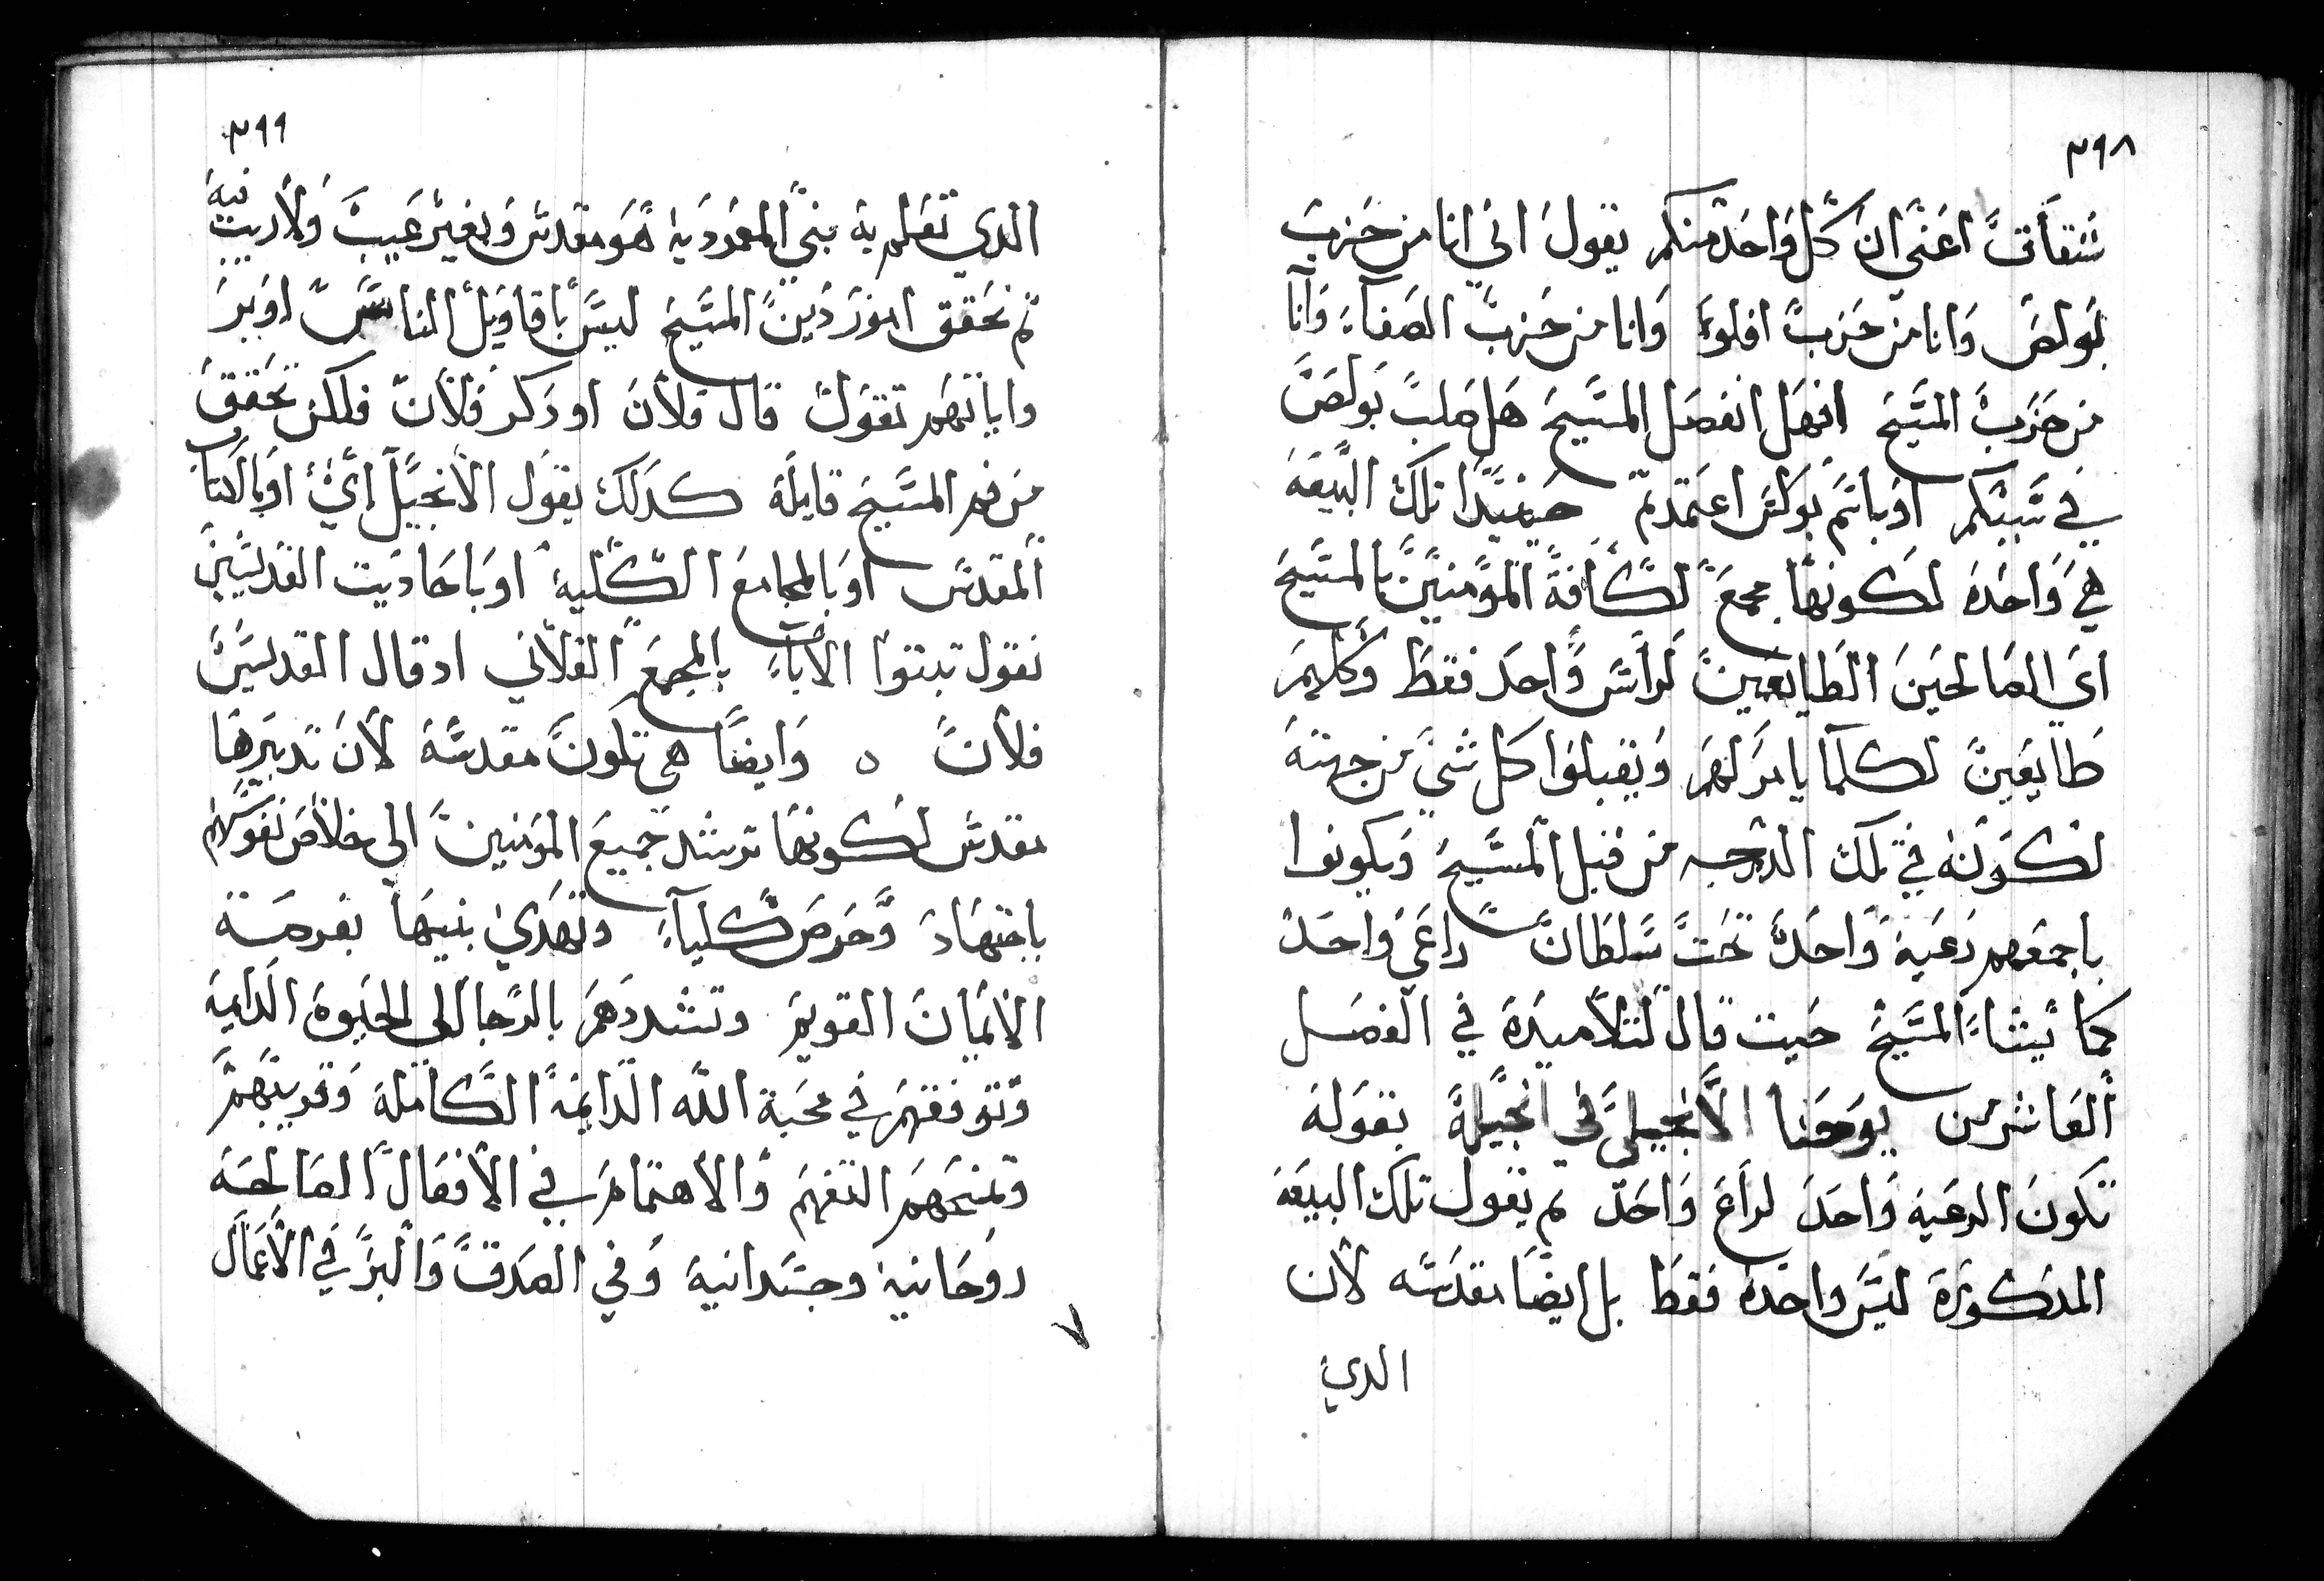 ٣٩٨
شقاق اعني ان كل واحد منكم يقول اني انا من حزب
بولص وانا من حزب افلوا وانا من حزب الصفاء وانا
من حزب المسيح افهل انفصل المسيح هل صلب بولص
في سببكم او باسم بولس اعتمدتم حينيدا تلك البيعه
هي واحده لكونها مجمع لكافة المومنين بالمسيح
اي الصالحين الطايعين لراس واحد فقط وكلهم
طايعين لكلما يامر لهم ويقبلوا كل شي من جهته
لكونه في تلك الدرجه من قبل المسيح ويكونوا
باجمعهم رعيه واحده تحت سلطان راعي واحد
كما يشاء المسيح حيت قال لتلاميده في الفصل
العاشر من يوحنا الانجيلي في انجيله بقوله
تكون الرعيه واحد لراع واحد تم يقول تلك البيعه
المدكوره ليس واحده فقط بل ايضا مقدسه لان
الدي
٣٩٩
الدي تعلم به بني المعموديه هو مقدس وبغير عيب ولا ريب فيه
تم تحقق امور دين المسيح ليس باقاويل الناس او بر
واياتهم تقول قال فلان او دكر فلان فلكن تحقق
من فم المسيح قايله كدلك يقول الانجيل اي او بالكتاب
المقدس او بالمجامع الكليه او باحاديت القديسين
نقول تبتوا الاباء بالمجمع الفلاني اد قال القديس
فلان ٥ وايضا هي تكون مقدسه لان تدبيرها
مقدس لكونها ترشد جميع المومنين الي خلاص نفوسهم
باجتهاد وحرص كلياء وتهدي بنيها بفرصة
الايمان القويم وتشددهم بالرجا الي الحيوه الدايمه
وتوفقهم في محبة الله الدايمه الكامله وقريبهم
وتمنحهم التفهم والاهتمام في الافعال الصالحه
روحانيه وجسدانيه وفي الصدق والبر في الاعمال
٧